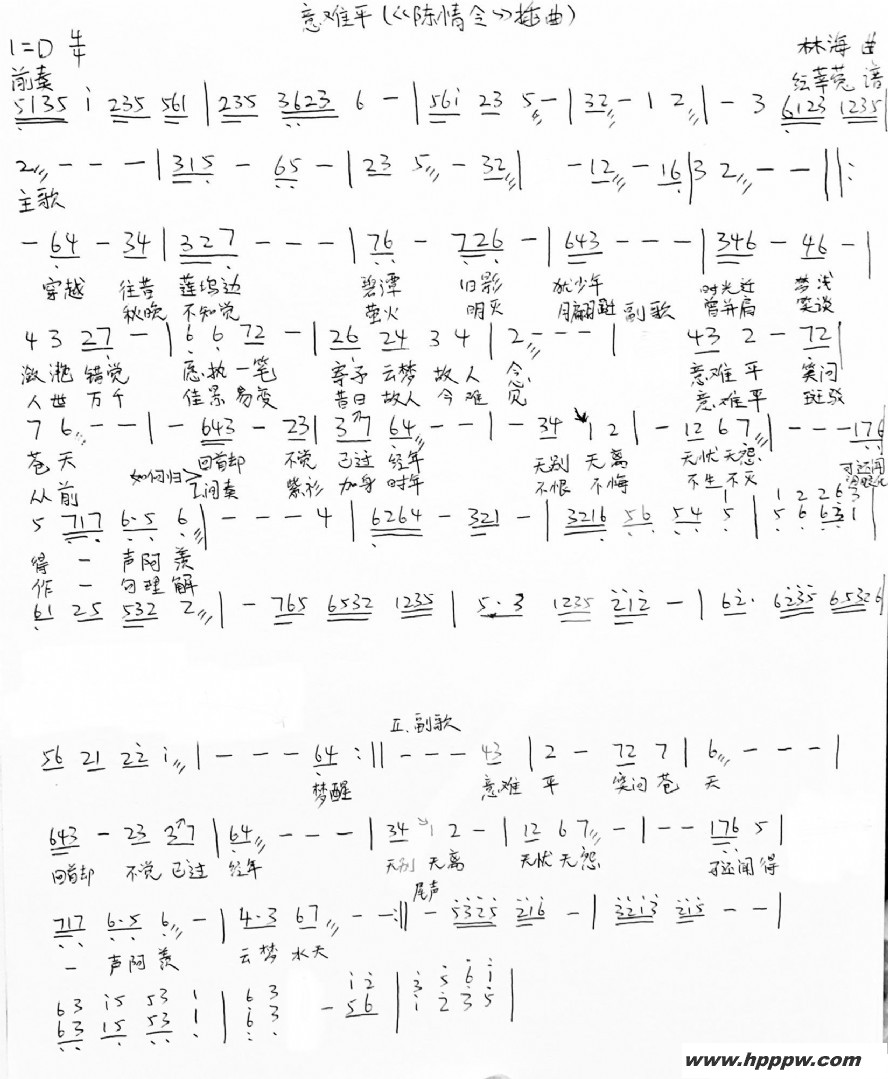 意难平(《陈情令》插曲)
1=D 4/4 林海 曲
前奏 纭莘苑 谱
5135 i 235 561 | 235 3623 6 - | 561 23 5 - | 32 - 1 2 | - 3 6123 1235 |
2 - - - | 315 - 65 - | 23 5 - 32 | - 12 - 16 | 3 2 - - ||:
主歌
- 64 - 34 | 327 - - - | 76 - 726 - | 643 - - - | 346 - 46 - |
穿越 往昔 莲坞边 碧潭 旧影 犹少年 时光迁 梦浅
秋晚 不知觉 萤火 明灭 曾并肩 笑谈
副歌
4 3 27 - | 6 6 72 - | 26 24 3 4 | 2 - - - | 43 2 - 72 |
潋滟 错觉 愿执一笔 寄予 云梦 故人 念 意难 平 笑问
人世 万千 佳景易变 昔日 故人 今难 见 意难 平 斑驳
7 6 - - | - 643 - 23 | 37 64 - - | - 34 1 2 | - 12 6 7 | - - - 176
苍天 回首却 不觉 已过 经年 无别 无离 无忧无怨 可还闻
从前 如何归> I.间奏 紫衫 加身 时年 不恨 不悔 不生不灭
5 717 6·5 6 | - - - 4 | 6264 - 321 - | 3216 56 54 5 | 5 6 631
得 一 声阿羡
作 一 句理解
61 25 532 2 | - 765 6532 1235 | 5·3 1235 212 - | 62· 6235 65326
II.副歌
56 21 22 i | - - - 64 :|| - - - 43 | 2 - 72 7 | 6 - - - |
梦醒 意难 平 笑问苍 天
643 - 23 37 | 64 - - - | 34 1 2 - | 12 6 7 - | - - 176 5 |
回首却 不觉 已过 经年 无别 无离 无忧 无怨 可还闻 得
尾声
717 6·5 6 - | 4·3 67 - - :|| - 5325 216 - | 3213 215 - - |
一 声阿 羡 云梦 水天
63 i5 53 1 | 6 3 i 2 | 3 5 6 i
63 15 53 1 | 6 3 - 56 | i 2 3 5 |
www.hpppw.com